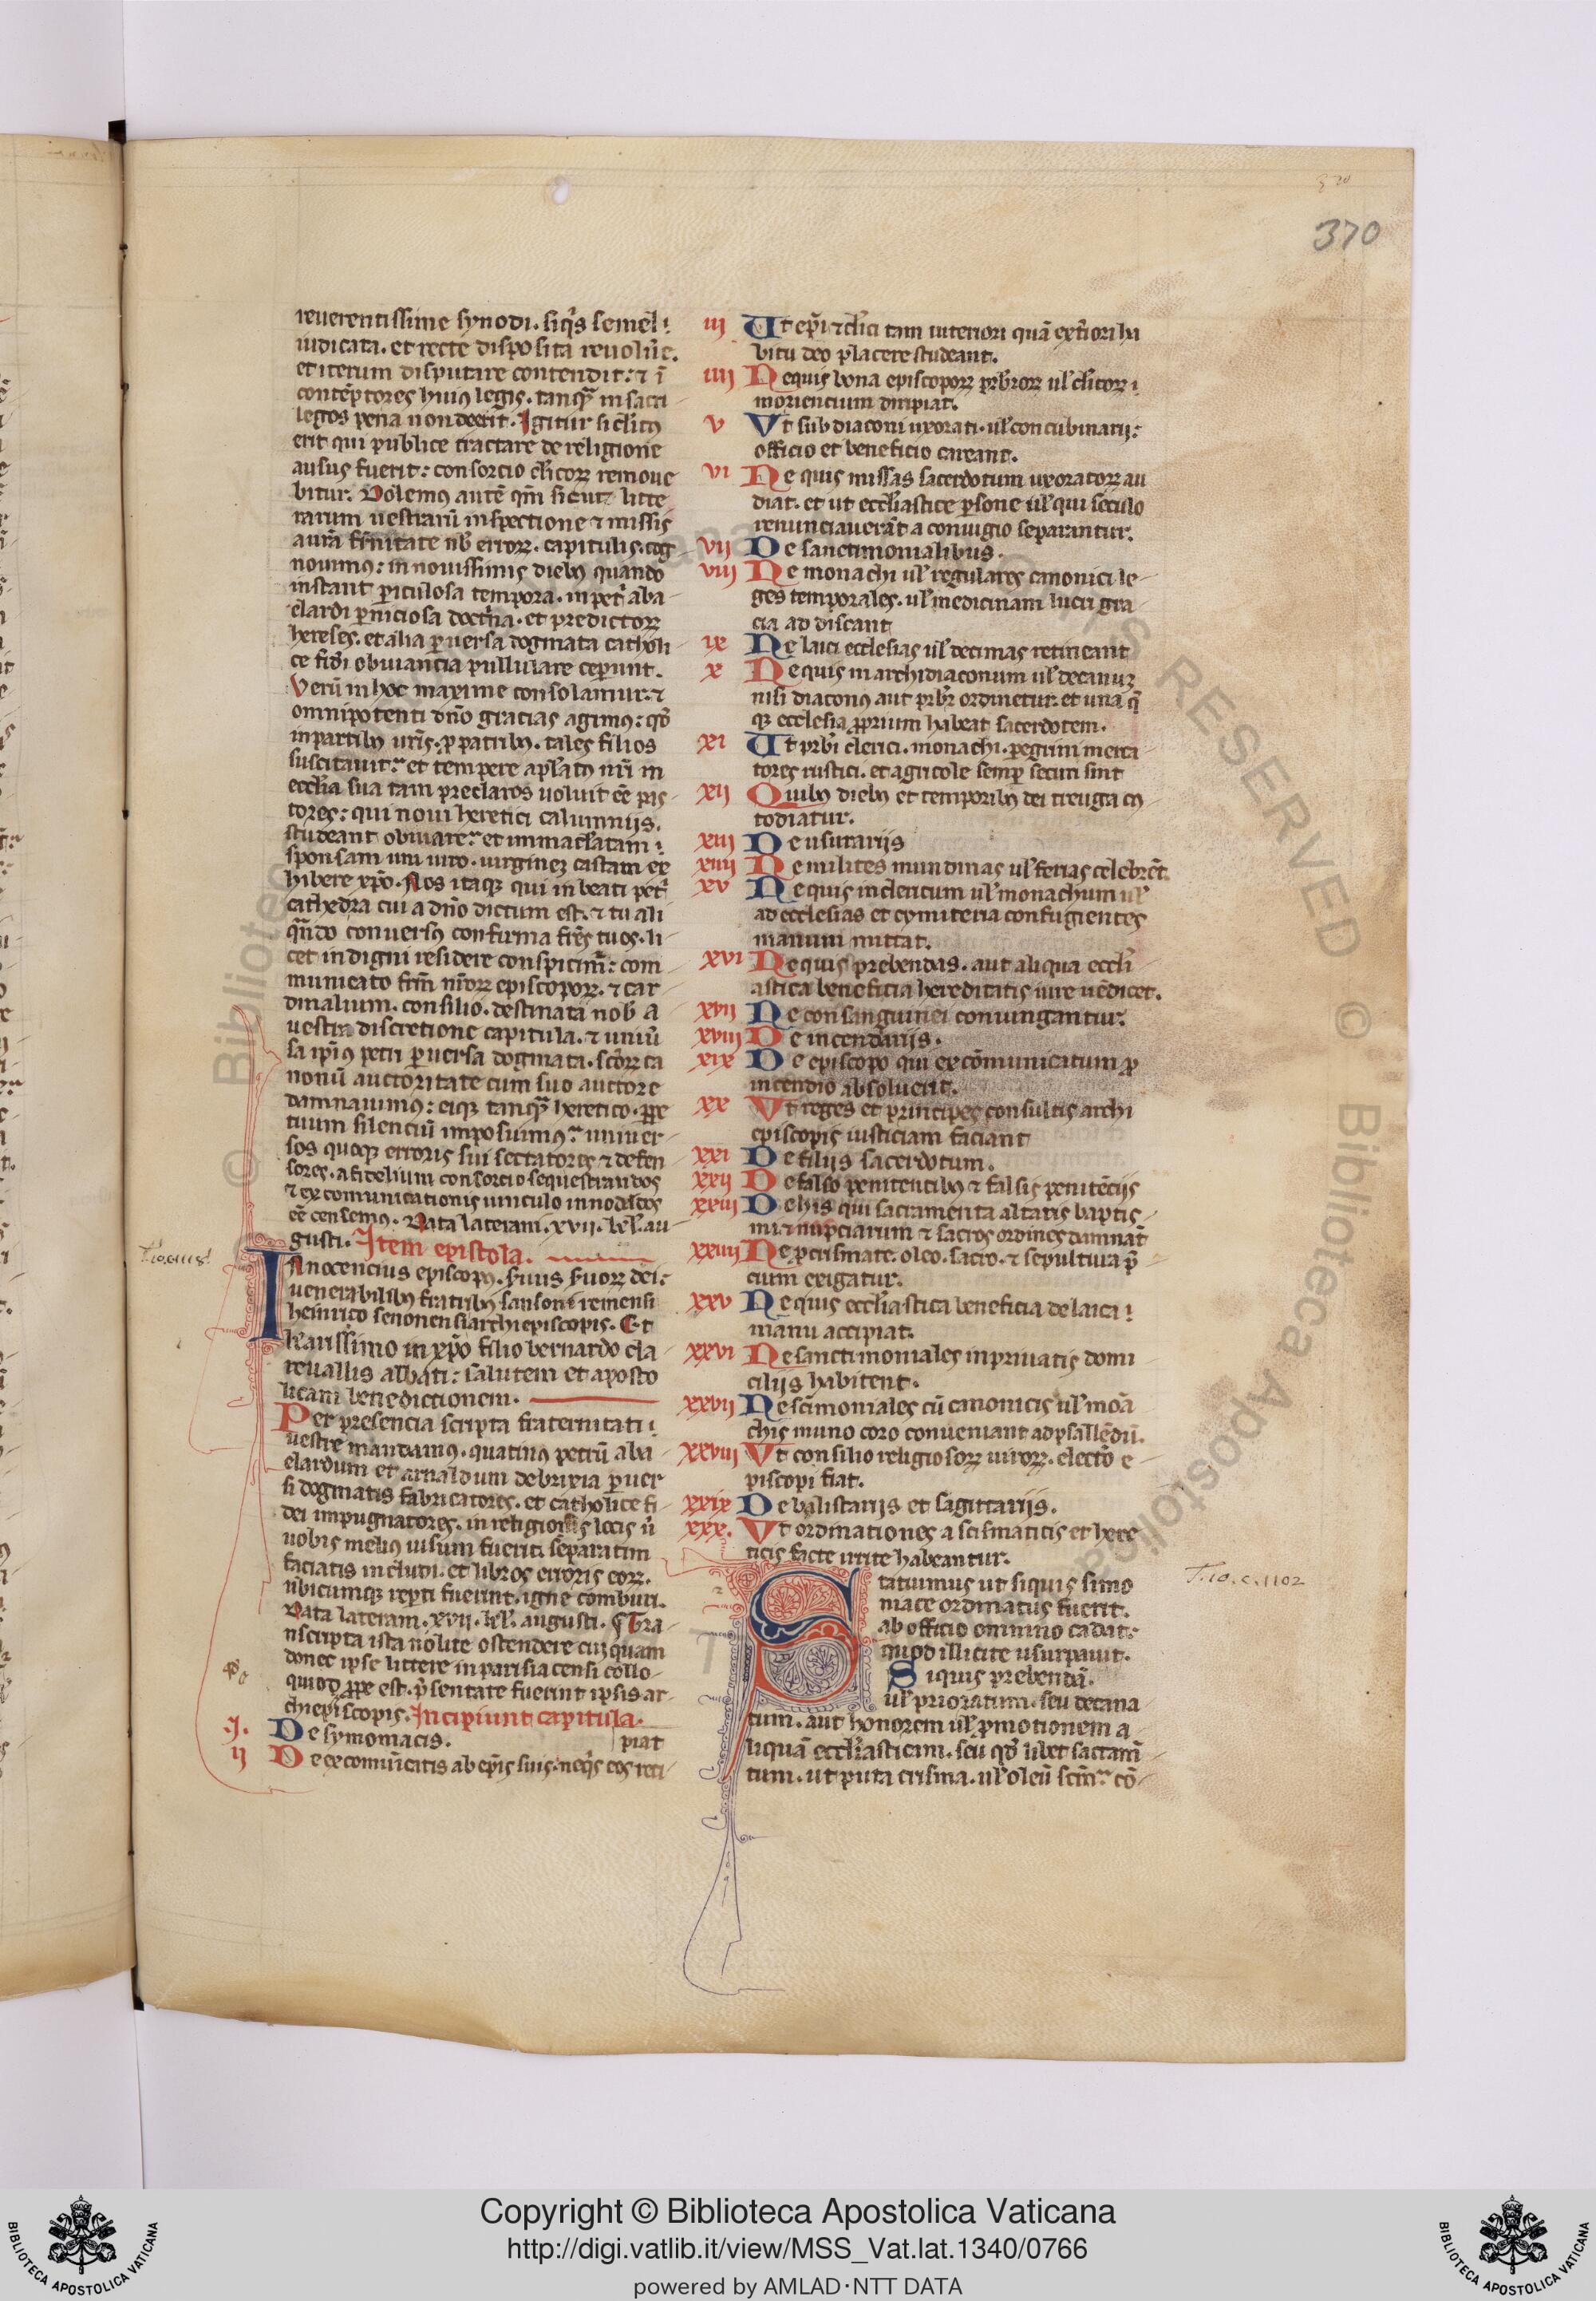 320
370
reuerentissime synodi. siq̃s semel
iudicata. et recte disposita reuolũe.
et iterum disputare contendit: ⁊ ĩ
contẽptores huiꝰ legis. tanqᷓ in sacri
legos pena non deerit. Igitur si cl̃icꝰ
erit qui publice tractare de religione
ausus fuerit: consorcio cl̃icoꝝ remoue
bitur. Dolemꝰ autẽ qm̃ sicut litte
rarum uestrarũ inspectione ⁊ missis
a ur̃a frñitate nob̾ erroꝝ. capitulis. cog
nouimꝰ: in nouissimis diebꝰ quando
instant ꝑiculosa tempora. in pet̾ aba
elardi ꝑniciosa doctⁱna. et predictoꝝ
hereses. et alia ꝑuersa dogmata catholi
ce fidei obuiancia pullulare ceperunt.
Verũ in hoc maxime consolamur: ⁊
omnipotenti dño gracias agimꝰ: qđ
in partibꝰ ur̃is. ꝓ patribꝰ. tales filios
suscitauit. et tempere apl̃atꝰ nr̃i in
eccl̃ia sua tam preclaros uoluit eẽ pas
tores: qui noui heretici calumniis.
studeant obuiare. et immacl̃atam
sponsam uni uiro. uirgineꝫ castam ex
hibere xp̃o. Nos itaqꝫ qui in beati pet̾
cathedra cui a dño dictum est. ⁊ tu ali
qñdo conuersꝰ confirma fr̃es tuos. li
cet indigni residere conspicimr̃: com
municato frm̃ nr̃oꝝ episcopoꝝ. ⁊ car
dinalium. consilio. destinata nob̾ a
uestra discretione capitula. ⁊ uniũ
sa ip̃iꝰ petri ꝑuersa dogmata. sc̃oꝝ ca
nonũ auctoritate cum suo auctore
damnauimꝰ: eiqꝫ tanqᷓ heretico. ꝑpe
tuum silenciũ imposuimꝰ. uniuer
sos quoqꝫ erroris sui sectatores ⁊ defen
sores. a fidelium consorcio sequestrandos
⁊ excomunicationis uinculo innodandos
eẽ censemꝰ. Data laterani. xvii. kl̃. au
gusti. Item epistola.
Innocencius episcopꝰ. seruus seruoꝝ dei:
uenerabilibꝰ fratribꝰ sansoni remensi
heinrico senonensi archiepiscopis. Et
karissimo in xp̃o filio bernardo cla
reuallis abbati: salutem et aposto
licam benedictionem.
Per presencia scripta fraternitati
uestre mandamꝰ. quatinꝰ petrũ aba
elardum et arnaldum de brixia ꝑuer
si dogmatis fabricatores. et catholice fi
dei impugnatores. in religiosis locis ũ
uobis meliꝰ uisum fuerit. separatim
faciatis includi. et libros erroris eoꝝ.
ubicumqꝫ repti fuerint. igne comburi.
Data lateran. xvii. kl̃. augusti. ¶ Tra
nscripta ista nolite ostendere cuiquam
donec ipse littere in parisiacensi collo
quio qđ ꝓpe est. p̃sentate fuerint ipsis ar
chiepiscopis. Incipiunt capitula.
.j. De symoniacis.
ij De excomũicatis ab ep̃is suis. neq̃s eos reci
piat
iij Ut ep̃i ⁊ cl̃ici tam interiori quã ext̾iori ha
bitu deo placere studeant.
iiij Nequis bona episcopoꝝ prb̾roꝝ ul̾ cl̃icoꝝ
moriencium diripiat.
v Vt subdiaconi uxorati. ul̾ concubinarij:
officio et beneficio careant.
vi Ne quis missas sacerdotum uxoratoꝝ au
diat. et ut eccl̃iastice ꝑsone ul̾ qui seculo
renunciauerãt a coniugio separantur.
vij De sanctimonialibus.
viij Ne monachi ul̾ regulares canonici le
ges temporales. ul̾ medicinam lucri gra
cia addiscant
ix Ne laici ecclesias ul̾ decimas retineant
x Nequis in archidiaconum ul̾ decanuꝫ
nisi diaconꝰ aut prb̾r ordinetur. et una q̃
qꝫ ecclesia ꝓprium habeat sacerdotem.
xi Ut prb̾i clerici. monachi. ꝑegrini merca
tores rustici. et agricole semꝑ securi sint
xij Quibꝰ diebꝰ et temporibꝰ dei treuga cꝰ
todiatur.
xiij De usurarijs
xiiij Ne milites nundinas ul̾ ferias celebrẽt.
xv Nequis in clericum ul̾ monachum ul̾
ad ecclesias et cymiteria confugientes
manum mittat.
xvi Nequis prebendas. aut aliqua eccl̃i
astica beneficia hereditatis iure uẽdicet.
xvij Ne consanguinei coniungantur.
xviij De incendarijs.
xix De episcopo qui excõmunicatum ꝓ
incendio absoluerit.
xx Vt reges et principes consultis archi
episcopis iusticiam faciant
xxi De filijs sacerdotum.
xxij De falso penitentibꝰ ⁊ falsis penitẽcijs
xxiij De his qui sacramenta altaris baptis
mi ⁊ nupciarum ⁊ sacros ordines damnãt
xxiiij Ne ꝓ crismate. oleo. sacro. ⁊ sepultura p̃
cium exigatur.
xxv Nequis eccl̃iastica beneficia de laici
manu accipiat.
xxvi Ne sanctimoniales in priuatis domi
cilijs habitent.
xxvij Ne sc̃imoniales cũ canonicis ul̾ moã
chis in uno coro conueniant ad psallẽdũ.
xxviij Vt consilio religiosoꝝ uiroꝝ. electo e
piscopi fiat.
xxix De balistarijs et sagittarijs.
xxx. Vt ordinationes a scismaticis et here
ticis facte irrite habeantur.
Statuimus ut siquis simo
niace ordinatus fuerit.
ab officio omnino cadat:
quod illicite usurpauit.
Siquis prebendã.
ul̾ prioratum. seu decana
tum. aut honorem ul̾ ꝓmotionem a
liquã eccl̃iasticam. seu qđ libet sacram̃
tum. ut puta crisma. ul̾ oleũ scm̃. cõ
T. 10. c. 1102
Copyright © Biblioteca Apostolica Vaticana
http://digi.vatlib.it/view/MSS_Vat.lat.1340/0766
powered by AMLAD·NTT DATA
BIBLIOTECA APOSTOLICA VATICANA
BIBLIOTECA APOSTOLICA VATICANA